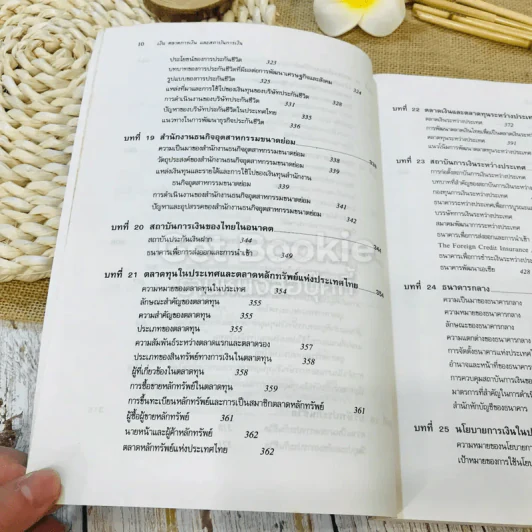 10 เงิน ตลาดการเงิน และสถาบันการเงิน
ประโยชน์ของการประกันชีวิต 323
บทบาทของการประกันชีวิตที่มีผลต่อการพัฒนาเศรษฐกิจและสังคม 324
รูปแบบของการประกันชีวิต 325
แหล่งที่มาและการใช้ไปของเงินทุนของบริษัทประกันชีวิต 328
การดำเนินงานของบริษัทประกันชีวิต 331
ปัญหาของบริษัทประกันชีวิตในประเทศไทย 335
แนวทางในการพัฒนาธุรกิจประกันชีวิต 336
บทที่ 19 สำนักงานธนกิจอุตสาหกรรมขนาดย่อม
ความเป็นมาของสำนักงานธนกิจอุตสาหกรรมขนาดย่อม 338
วัตถุประสงค์ของสำนักงานธนกิจอุตสาหกรรมขนาดย่อม 339
แหล่งเงินทุนและรายได้และการใช้ไปของเงินทุนสำนักงาน
ธนกิจอุตสาหกรรมขนาดย่อม 339
การดำเนินงานของสำนักงานธนกิจอุตสาหกรรมขนาดย่อม 341
ปัญหาและอุปสรรคของสำนักงานธนกิจอุตสาหกรรมขนาดย่อม 342
บทที่ 20 สถาบันการเงินของไทยในอนาคต
สถาบันประกันเงินฝาก 344
ธนาคารเพื่อการส่งออกและการนำเข้า 349
บทที่ 21 ตลาดทุนในประเทศและตลาดหลักทรัพย์แห่งประเทศไทย 354
ความหมายของตลาดทุนในประเทศ 354
ลักษณะสำคัญของตลาดทุน 355
ความสำคัญของตลาดทุน 355
ประเภทของตลาดทุน 355
ความสัมพันธ์ระหว่างตลาดแรกและตลาดรอง 357
ประเภทของสินทรัพย์ทางการเงินในตลาดทุน 358
ผู้ที่เกี่ยวข้องในตลาดทุน 358
การซื้อขายหลักทรัพย์ในตลาดทุน 359
การขึ้นทะเบียนหลักทรัพย์และการเป็นสมาชิกตลาดหลักทรัพย์ 361
ผู้ซื้อผู้ขายหลักทรัพย์ 361
นายหน้าและผู้ค้าหลักทรัพย์ 362
ตลาดหลักทรัพย์แห่งประเทศไทย 362
บทที่ 22 ตลาดเงินและตลาดทุนระหว่างประเทศ
ตลาดเงินระหว่างประเทศ 372
ตลาดทุนระหว่างประเทศ 391
บทที่ 23 สถาบันการเงินระหว่างประเทศ
กองทุนการเงินระหว่างประเทศ
บรรษัทการเงินระหว่างประเทศ
ธนาคารเพื่อการส่งออกและการนำเข้า
The Foreign Credit Insurance
ธนาคารเพื่อการชำระเงินระหว่างประเทศ
ธนาคารพัฒนาเอเชีย 428
บทที่ 24 ธนาคารกลาง
ความเป็นมาของธนาคารกลาง
ความหมายของธนาคารกลาง
ลักษณะของธนาคารกลาง
ความแตกต่างของธนาคารกลาง
การจัดตั้งธนาคารแห่งประเทศ
อำนาจและหน้าที่ของธนาคาร
การควบคุมสถาบันการเงินของ
มาตรการที่สำคัญในการดำเ
สำนักหักบัญชีของธนาคาร
บทที่ 25 นโยบายการเงินในป
ความหมายของนโยบายการ
เป้าหมายของการใช้นโยบ
Bookie